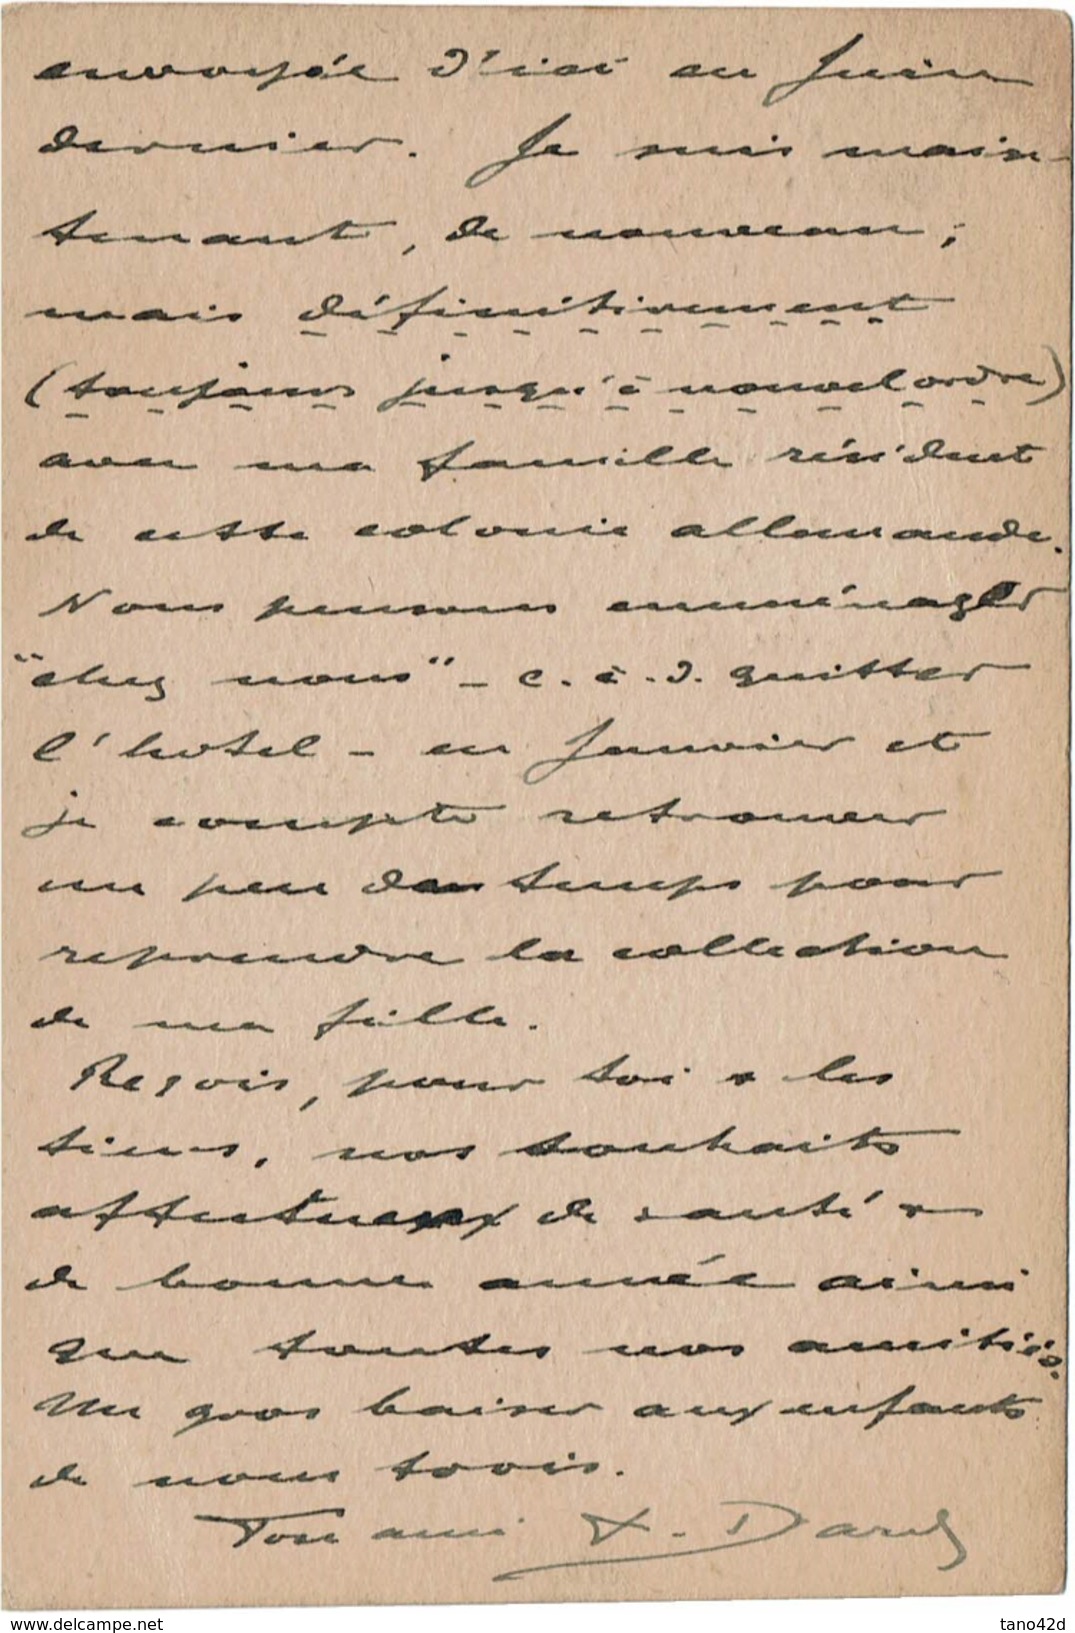 envoyée d'ici en Juin
dernier. Je suis main-
tenant, de nouveau,
mais définitivement
(toujours jusqu'à nouvel ordre)
avec ma famille résident
de cette colonie allemande.
Nous pensons emménager
"chez nous" - c. à. d. quitter
l'hotel - en Janvier et
je compte retrouver
un peu de temps pour
reprendre la collection
de ma fille.
Reçois, pour toi & les
tiens, nos souhaits
affectueux de santé &
de bonne année ainsi
que toutes nos amitiés.
Un gros baiser aux enfants
de nous trois.
Ton ami
delcampe.net
tano42d